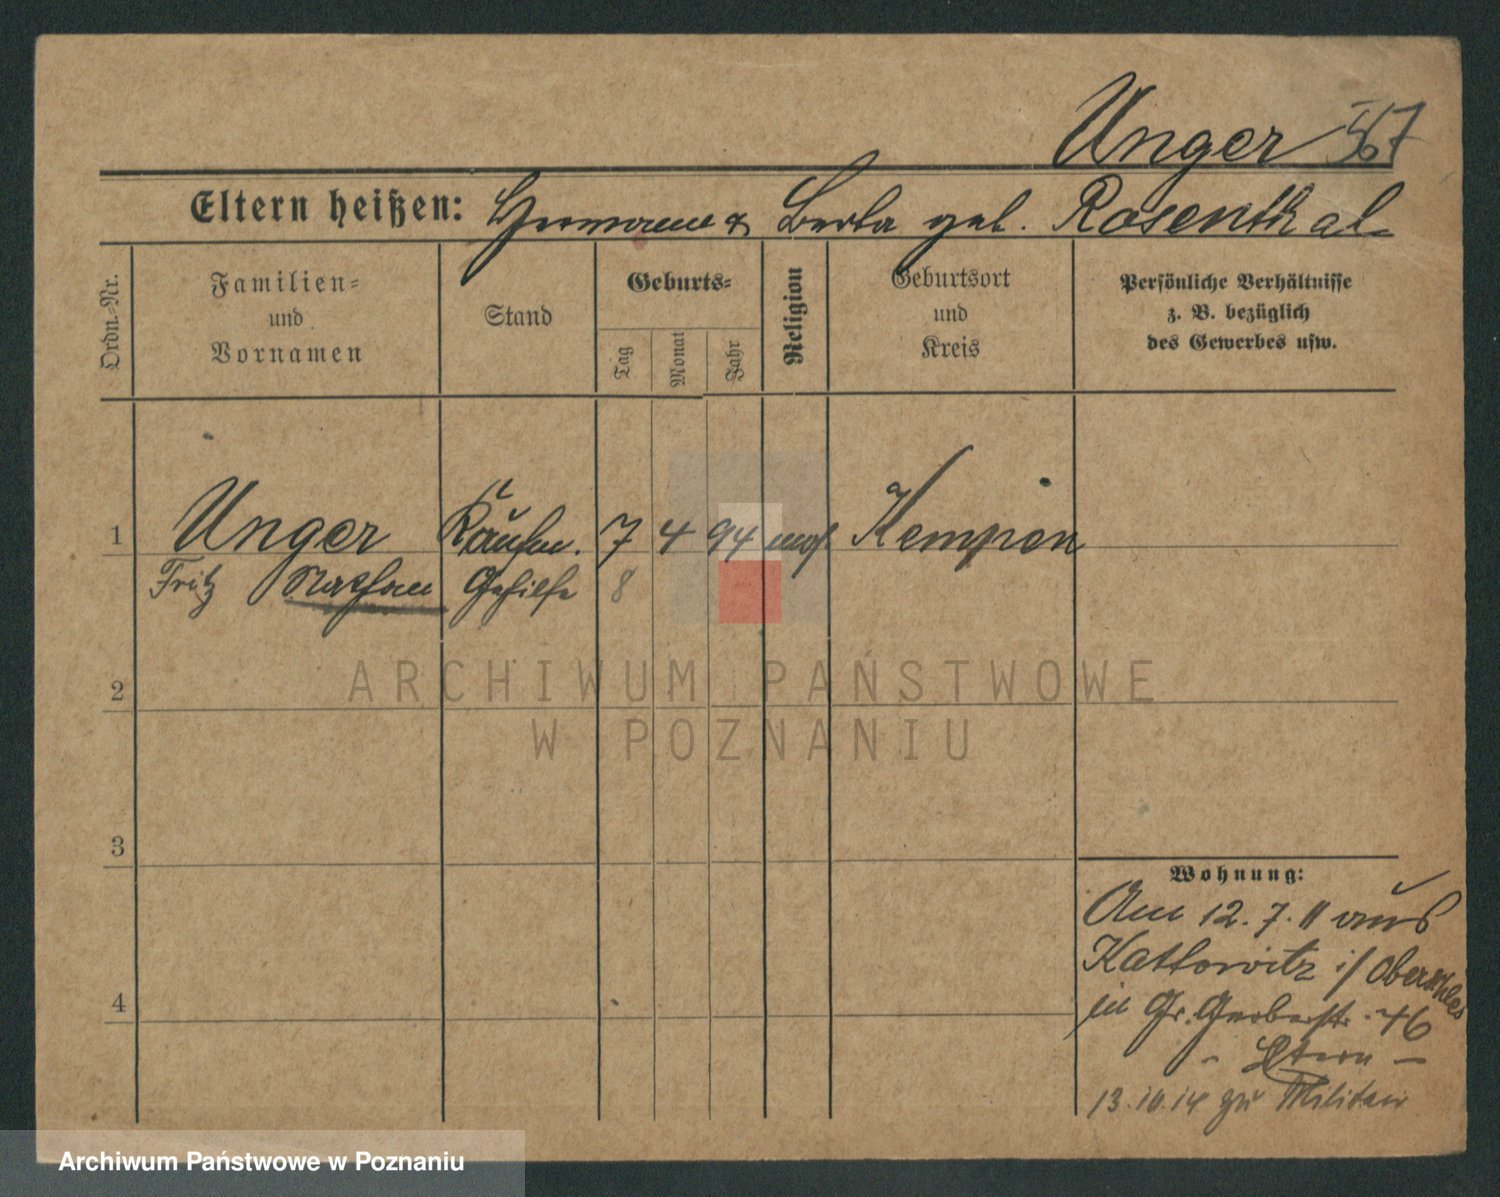 Unger
Eltern heißen: Hermann & Berta geb. Rosenthal
Ordn.-Nr.
Familien-
und
Vornamen
Stand
Geburts-
Tag
Monat
Jahr
Religion
Geburtsort
und
Kreis
Persönliche Verhältnisse
z. B. bezüglich
des Gewerbes usw.
1 Unger Kaufm. 7 4 94 mos. Kempen
Fritz Nathan Gehilfe 8
2
3
4
Wohnung:
Am 12. 7. 11 aus
Kattowitz i/ Oberschles
in Gr. Gerberstr. 46
- Eltern -
13.10.14 zu Militär
ARCHIWUM PAŃSTWOWE
W POZNANIU
Archiwum Państwowe w Poznaniu